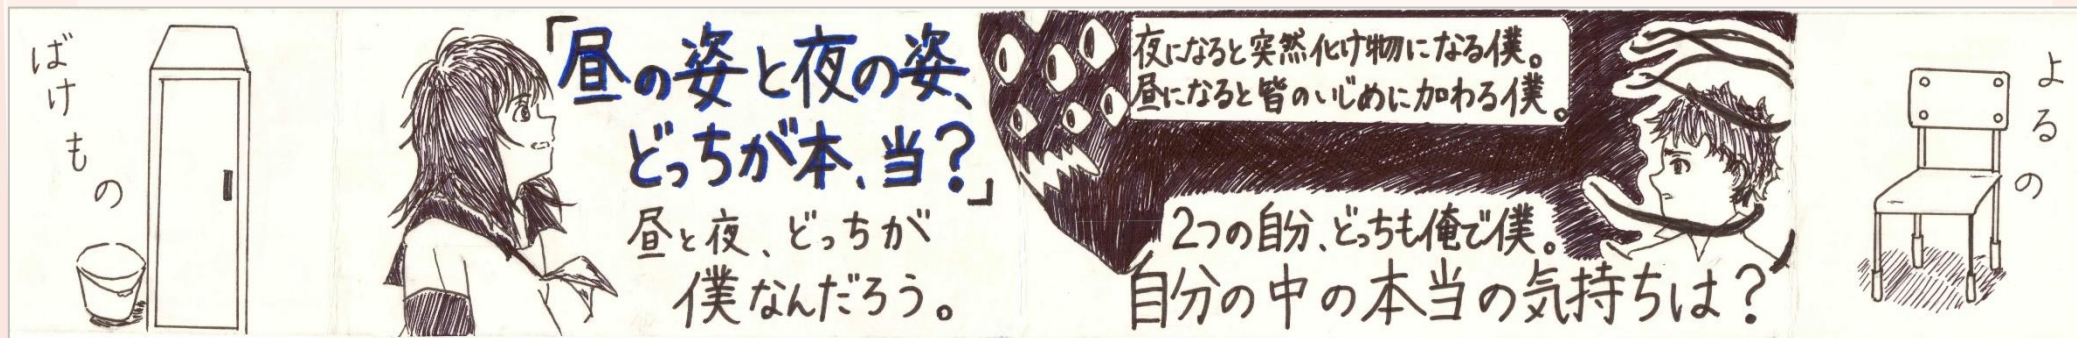 よるの
ばけもの
「昼の姿と夜の姿、
どっちが本、当？」
昼と夜、どっちが
僕なんだろう。
夜になると突然化け物になる僕。
昼になると皆のいじめに加わる僕。
2つの自分、どっちも俺で僕。
自分の中の本当の気持ちは？